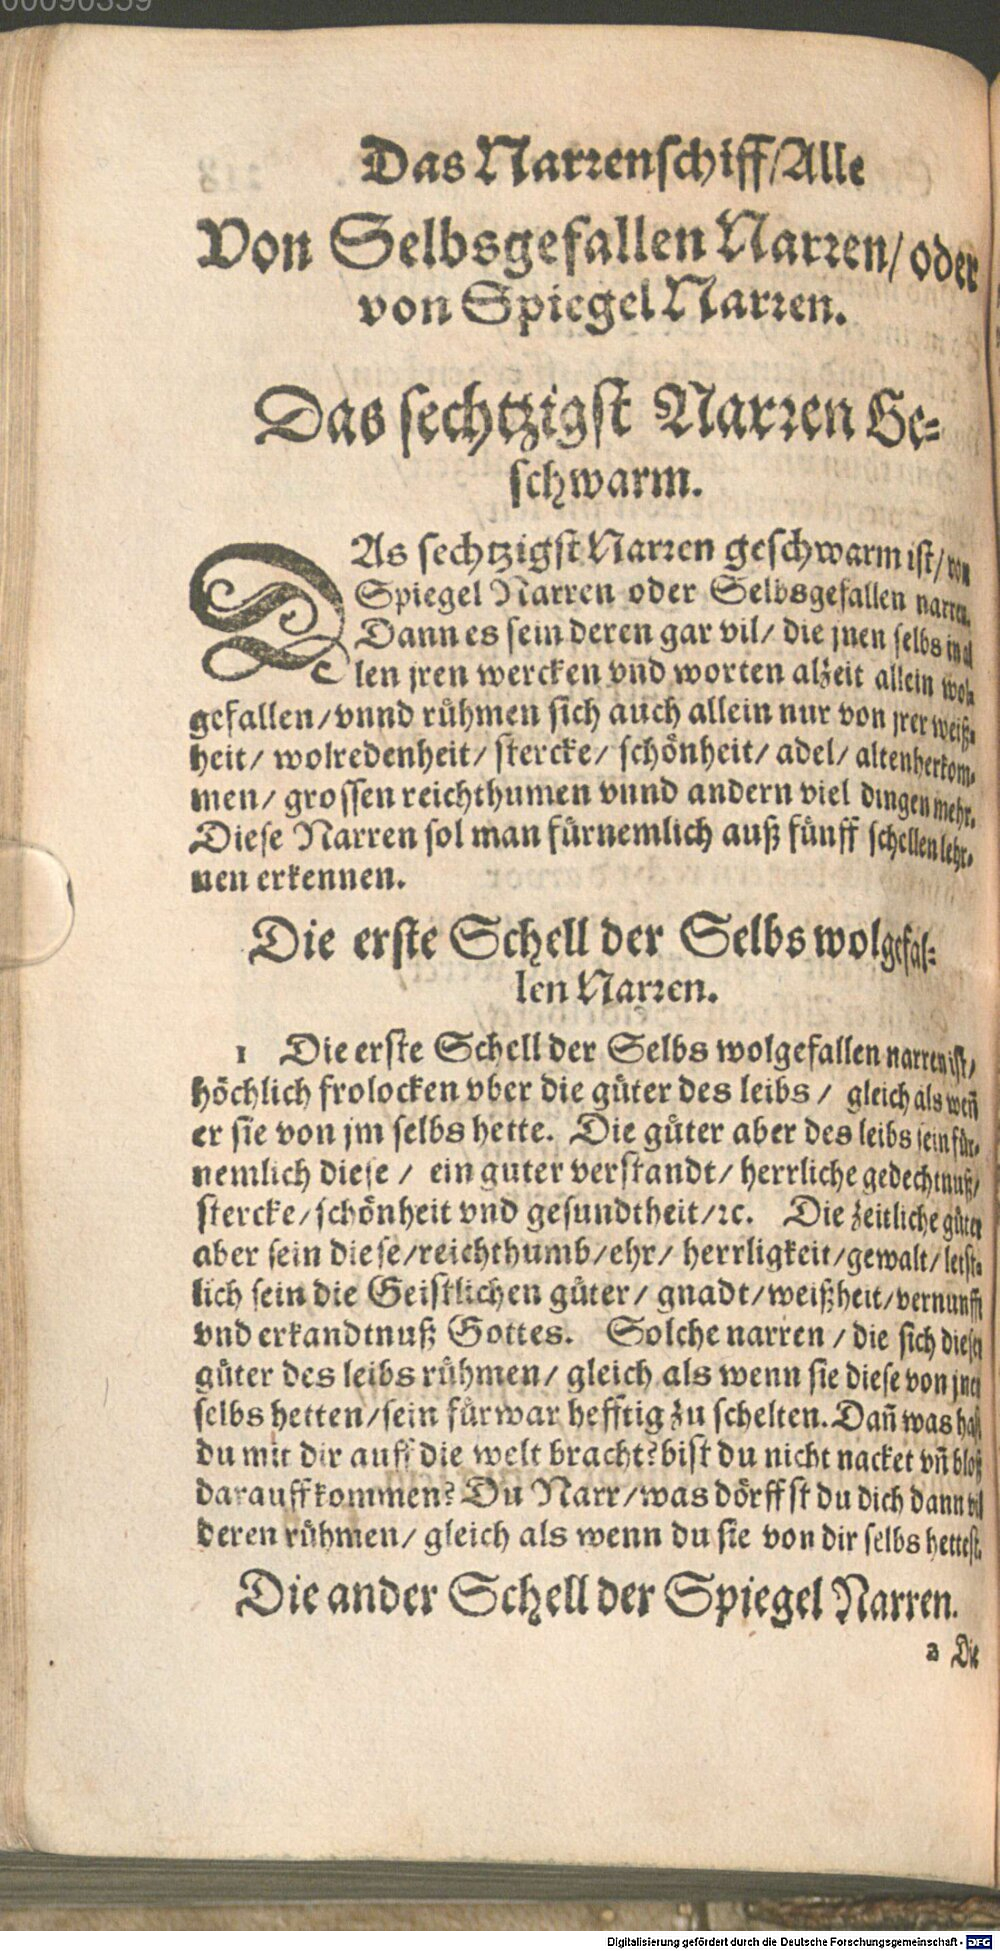 00090359
Das Narrenschiff/Alle
Von Selbsgefallen Narren/ oder
von Spiegel Narren.
Das sechtzigst Narren Ge-
schwarm.
DAs sechtzigst Narren geschwarm ist/ von
Spiegel Narren oder Selbsgefallen narren.
Dann es sein deren gar vil/ die jnen selbs in al
len jren wercken vnd worten alzeit allein wol-
gefallen/vnnd rühmen sich auch allein nur von jrer weiß-
heit/ wolredenheit/ stercke/ schönheit/ adel/ altenherkom-
men/ grossen reichthumen vnnd andern viel dingen mehr.
Diese Narren sol man fürnemlich auß fünff schellen lehr-
nen erkennen.
Die erste Schell der Selbs wolgefal-
len Narren.
1 Die erste Schell der Selbs wolgefallen narren ist/
höchlich frolocken vber die güter des leibs / gleich als weñ
er sie von jm selbs hette. Die güter aber des leibs sein für-
nemlich diese / ein guter verstandt/ herrliche gedechtnuß/
stercke/schönheit vnd gesundtheit/ꝛc. Die zeitliche güter
aber sein diese/reichthumb/ehr/ herrligkeit/gewalt/letst-
lich sein die Geistlichen güter/ gnadt/weißheit/vernunfft
vnd erkandtnuß Gottes. Solche narren / die sich dieser
güter des leibs rühmen/ gleich als wenn sie diese von jnen
selbs hetten/sein fürwar hefftig zu schelten. Dañ was hast
du mit dir auff die welt bracht? bist du nicht nacket vñ bloß
darauff kommen? Du Narr/was dörffst du dich dann vil
deren rühmen/ gleich als wenn du sie von dir selbs hettest.
Die ander Schell der Spiegel Narren.
2 Die
Digitalisierung gefördert durch die Deutsche Forschungsgemeinschaft - DFG